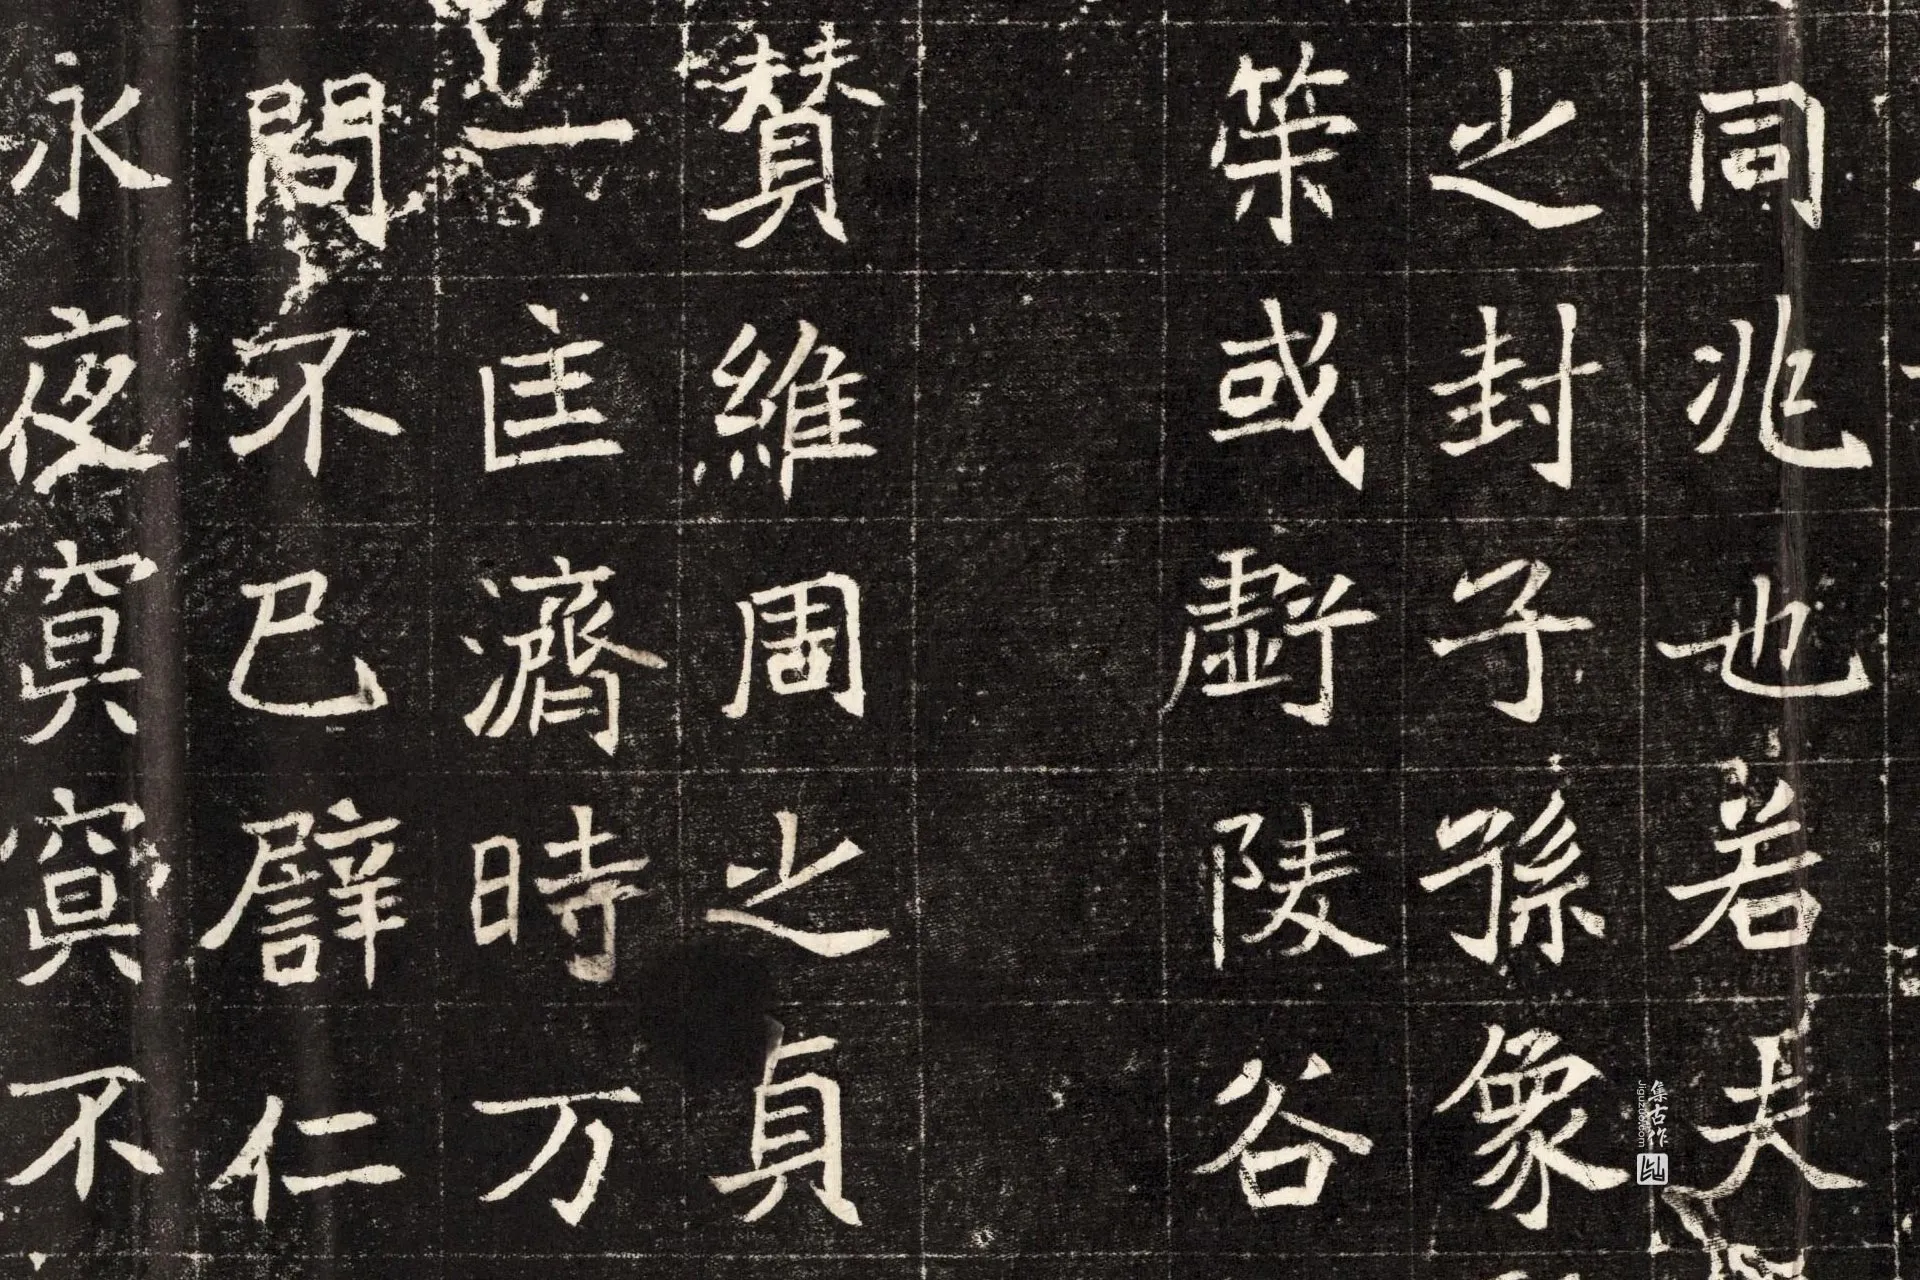 同兆也若夫
之封子孫象
策或虧陵谷
賛維周之貞
一匡濟時万
不已譬仁
永夜冥冥不
集古作
Jiguzuo.com